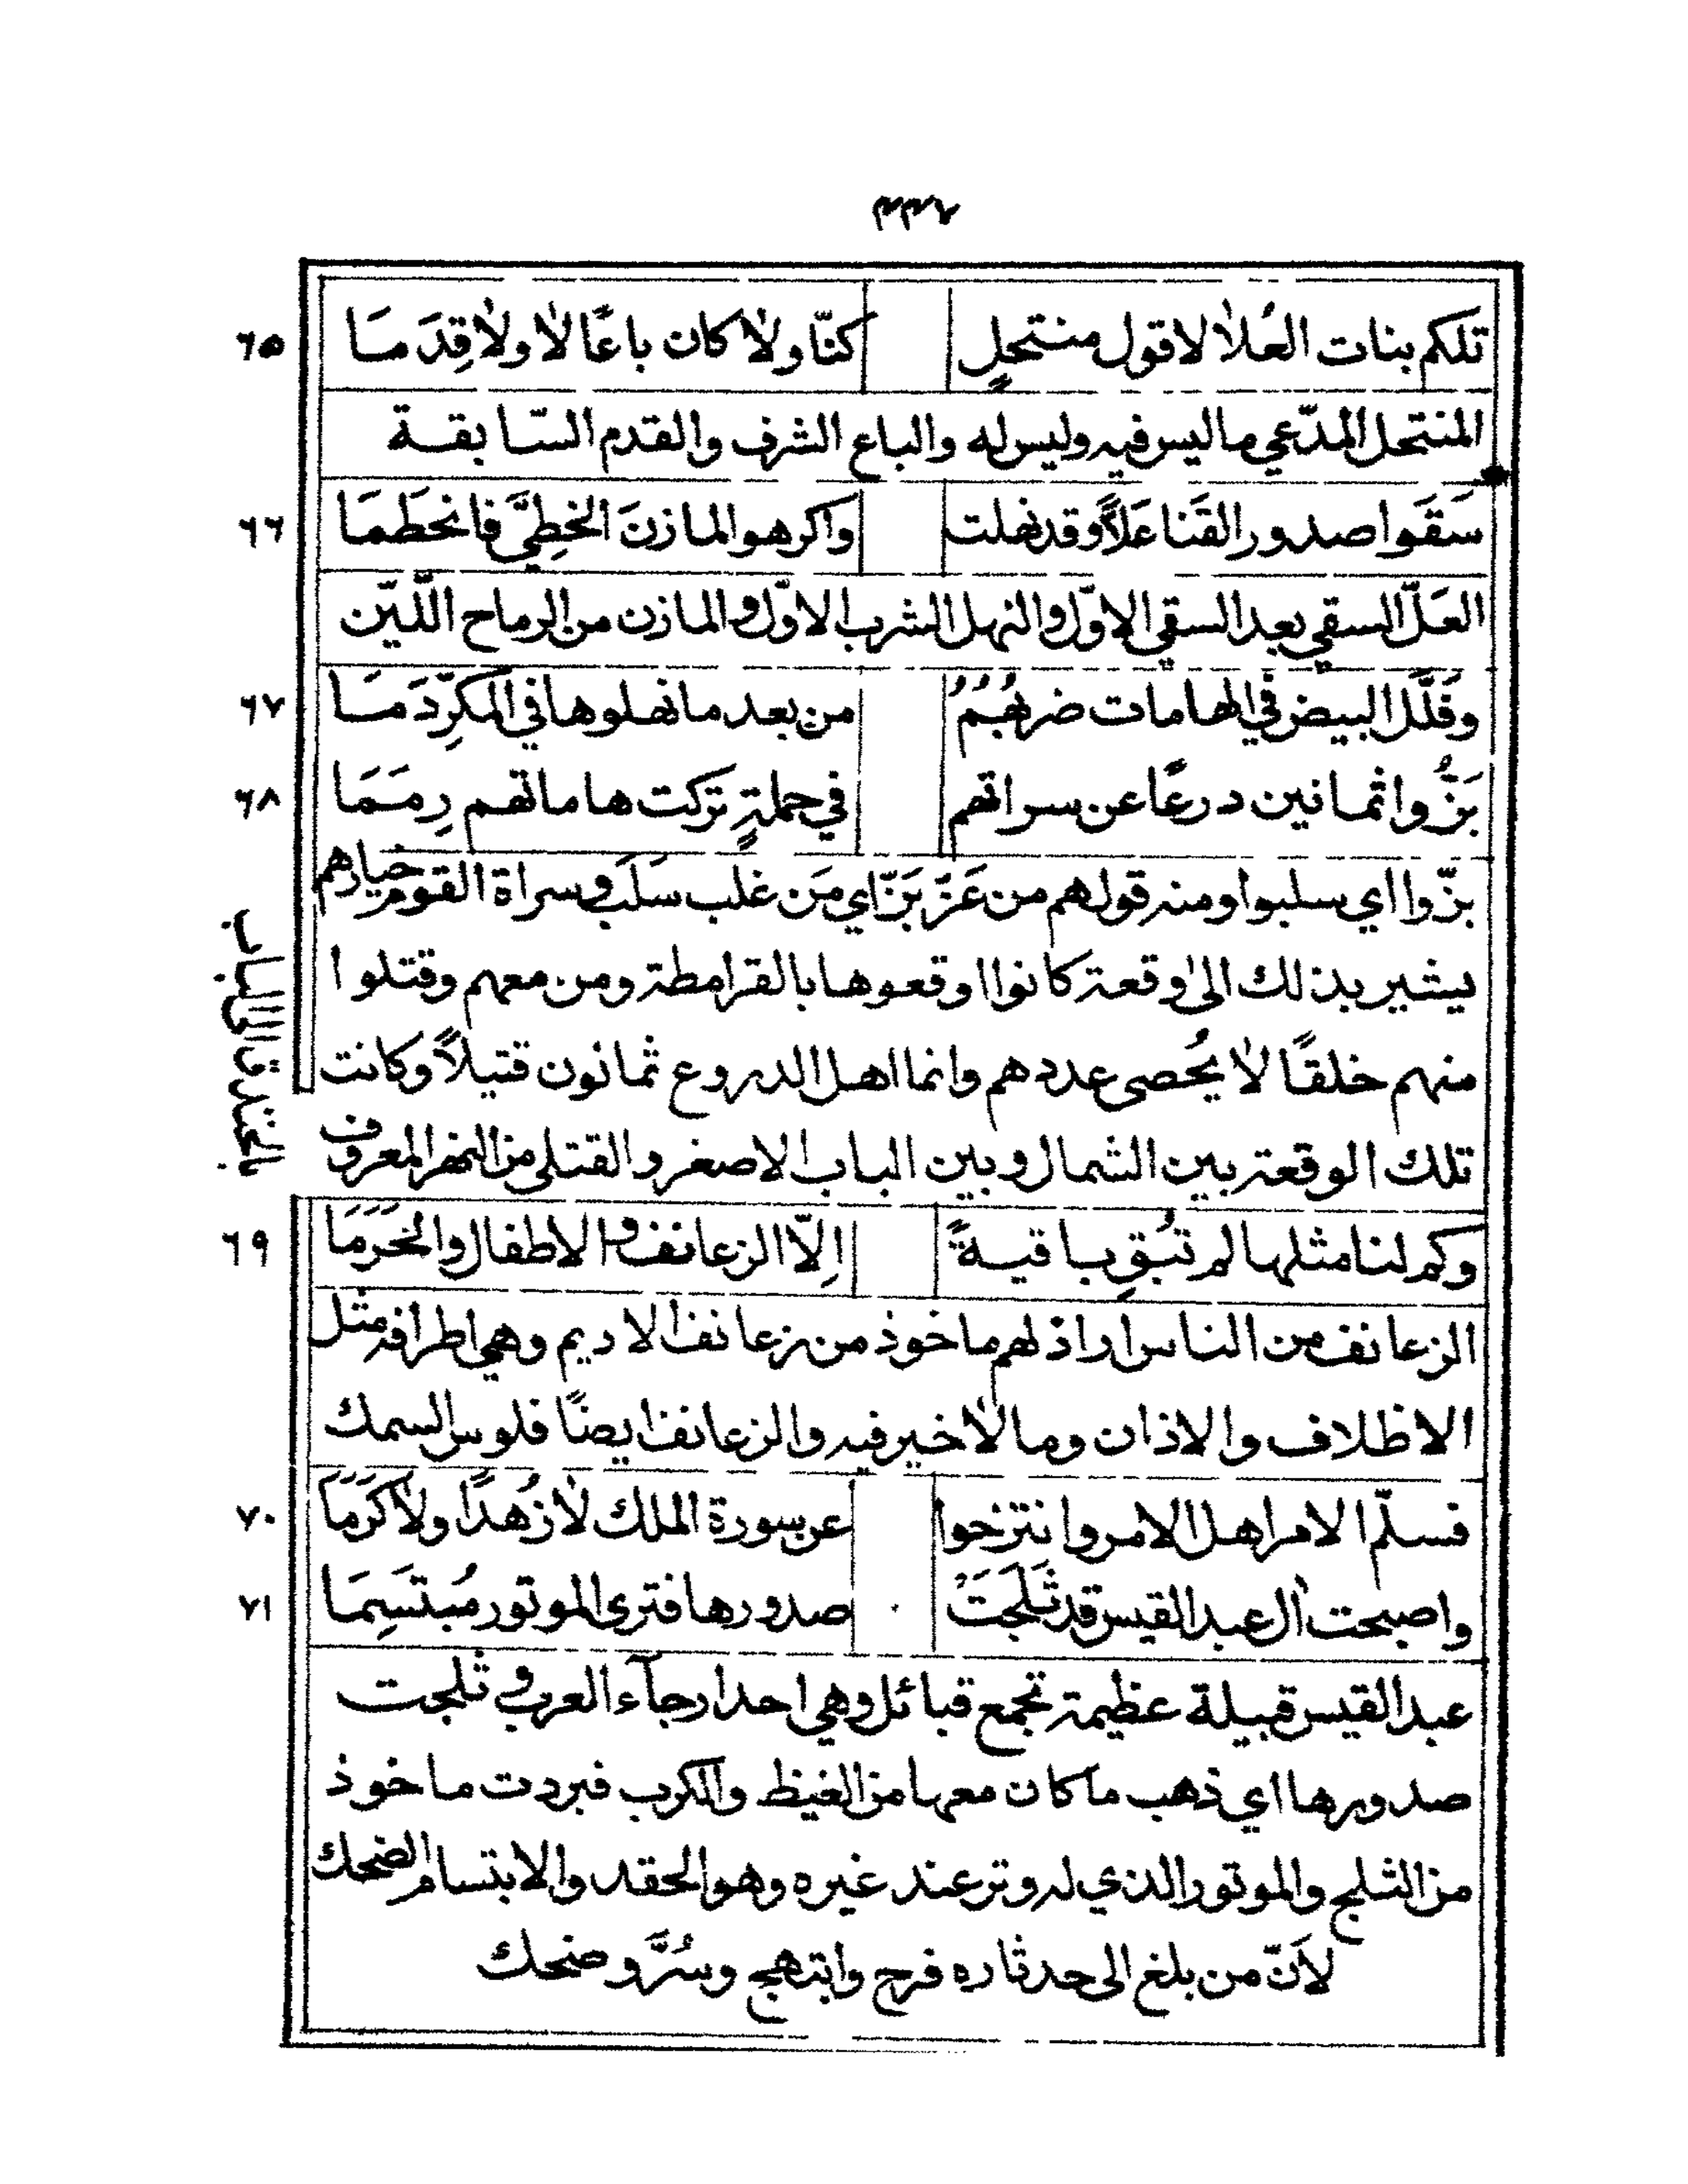 تلكم بنات العُلا لا قول منتحلٍ كنّا ولا كان باعًا لا ولا قِدَمَا ٦٥
المنتحل المدّعي ما ليس فيه وليس له والباع الشرف والقدم السّابقة
سَقَوا صدور القَنا عَلاًّ وقد نهلت واكرهوا المازنَ الخطِيَّ فانحطَمَا ٦٦
العَلّ السقي بعد السقي الاوّل والنهل الشرب الاوّل والمازن من الرماح اللّيّن
وفَلَّلَ البيض في الهامات ضربُهُمُ من بعد ما نهلوها في المكرّ دَمَا ٦٧
بَزُّوا ثمانين درعًا عن سراتهم في حملةٍ تركت هاماتهم رِمَمَا ٦٨
بزّوا اي سلبوا ومنه قولهم من عَزّ بَزّ اي مَن غلب سلَب وسراة القوم خيارهم
يشير بذلك الى وقعة كانوا اوقعوها بالقرامطة ومن معهم وقتلوا
منهم خلقًا لا يُحصى عددهم وانما اهل الدروع ثمانون قتيلاً وكانت
تلك الوقعة بين الشمال وبين الباب الاصغر والقتلى من النهر المعروف
بالخندق الى الباب
وكم لنا مثلها لم تُبقِ باقيةً اِلاّ الزعانف والاطفال والحُرَمَا ٦٩
الزعانف من الناس اراذلهم ماخوذ من زعانف الاديم وهي اطرافه مثل
الاظلاف والاذان وما لا خير فيه والزعانف ايضًا فلوس السمك
فسلّم الامر اهل الامر وانتزحوا عن سورة الملك لا زُهدًا ولا كَرَمَا ٧٠
واصبحت آل عبد القيس قد ثَلَجَتْ صدورها فترى الموتور مُبتَسِمَا ٧١
عبد القيس قبيلة عظيمة تجمع قبائل وهي احد ارجآء العرب وثلجت
صدورها اي ذهب ما كان معها من الغيظ والكرب فبردت ماخوذ
من الثلج والموتور الذي له وتر عند غيره وهو الحقد والابتسام الضحك
لاَنّ من بلغ الى حد ثاره فرح وابتهج وسُرَّ وضحك